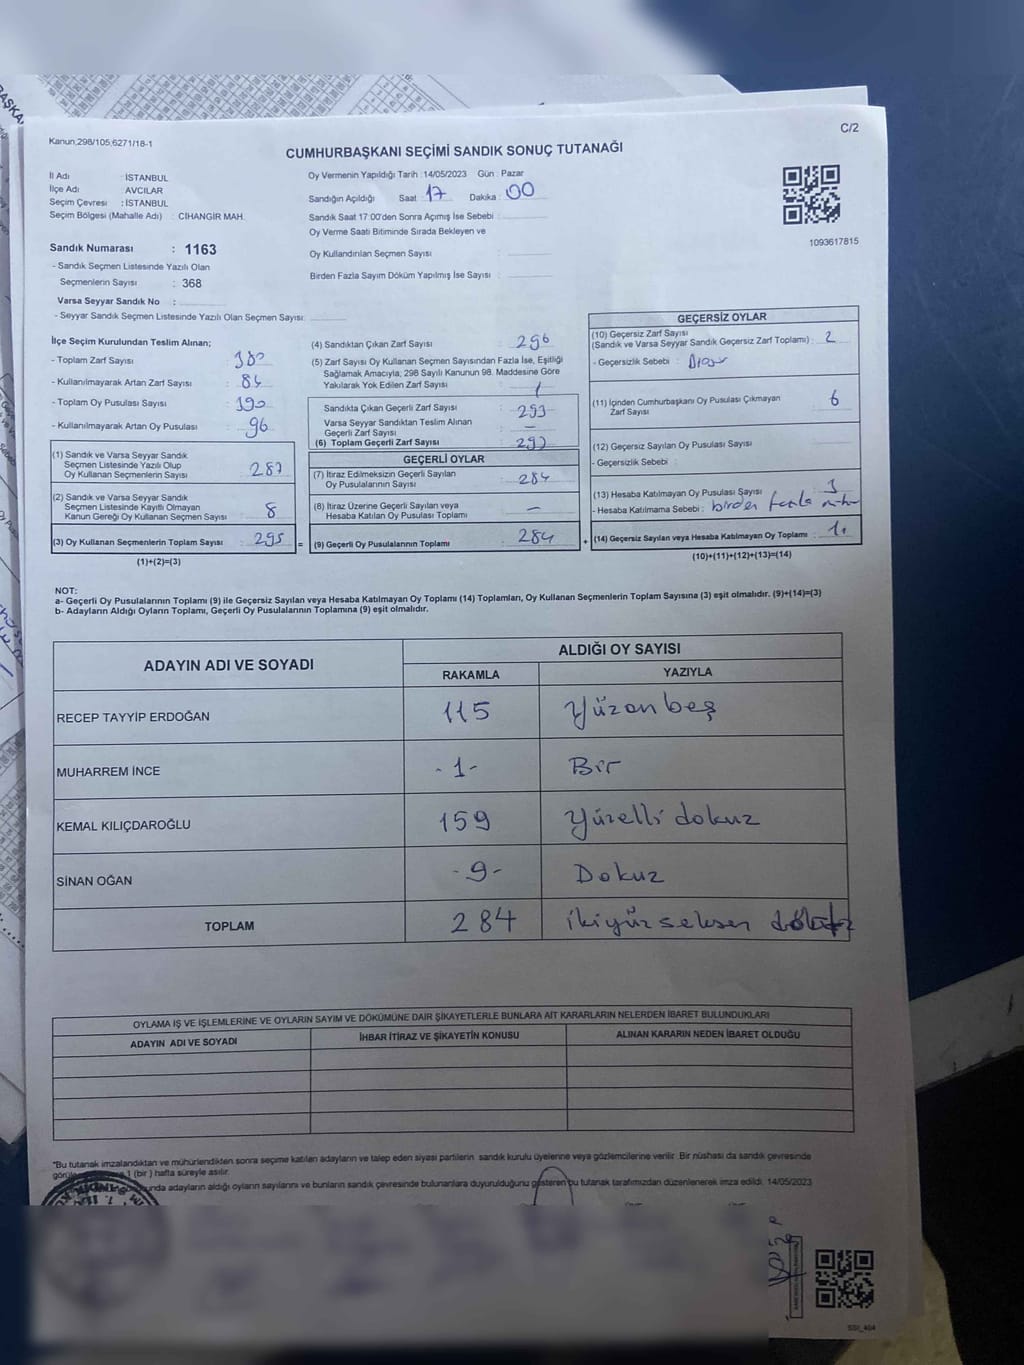 C/2
Kanun,298/105,6271/18-1
CUMHURBAŞKANI SEÇİMİ SANDIK SONUÇ TUTANAĞI
İl Adı : İSTANBUL
İlçe Adı : AVCILAR
Seçim Çevresi : İSTANBUL
Seçim Bölgesi (Mahalle Adı) : CİHANGİR MAH.
Oy Vermenin Yapıldığı Tarih :14/05/2023 Gün : Pazar
Sandığın Açıldığı Saat : 17 Dakika : 00
Sandık Saat 17:00'den Sonra Açımış İse Sebebi :
Oy Verme Saati Bitiminde Sırada Bekleyen ve
Oy Kullandırılan Seçmen Sayısı :
Birden Fazla Sayım Döküm Yapılmış İse Sayısı :
1093617815
Sandık Numarası : 1163
- Sandık Seçmen Listesinde Yazılı Olan
Seçmenlerin Sayısı : 368
Varsa Seyyar Sandık No :
- Seyyar Sandık Seçmen Listesinde Yazılı Olan Seçmen Sayısı:
İlçe Seçim Kurulundan Teslim Alınan;
- Toplam Zarf Sayısı : 380
- Kullanılmayarak Artan Zarf Sayısı : 84
- Toplam Oy Pusulası Sayısı : 390
- Kullanılmayarak Artan Oy Pusulası : 96
(1) Sandık ve Varsa Seyyar Sandık
Seçmen Listesinde Yazılı Olup
Oy Kullanan Seçmenlerin Sayısı : 287
(2) Sandık ve Varsa Seyyar Sandık
Seçmen Listesinde Kayıtlı Olmayan
Kanun Gereği Oy Kullanan Seçmen Sayısı : 8
(3) Oy Kullanan Seçmenlerin Toplam Sayısı : 295 =
(1)+(2)=(3)
(4) Sandıktan Çıkan Zarf Sayısı : 296
(5) Zarf Sayısı Oy Kullanan Seçmen Sayısından Fazla İse, Eşitliği
Sağlamak Amacıyla; 298 Sayılı Kanunun 98. Maddesine Göre
Yakılarak Yok Edilen Zarf Sayısı : 1
Sandıkta Çıkan Geçerli Zarf Sayısı : 293
Varsa Seyyar Sandıktan Teslim Alınan
Geçerli Zarf Sayısı : —
(6) Toplam Geçerli Zarf Sayısı : 293
GEÇERLİ OYLAR
(7) İtiraz Edilmeksizin Geçerli Sayılan
Oy Pusulalarının Sayısı : 284
(8) İtiraz Üzerine Geçerli Sayılan veya
Hesaba Katılan Oy Pusulası Toplamı : —
(9) Geçerli Oy Pusulalarının Toplamı : 284 +
GEÇERSİZ OYLAR
(10) Geçersiz Zarf Sayısı
(Sandık ve Varsa Seyyar Sandık Geçersiz Zarf Toplamı) : 2
- Geçersizlik Sebebi :
(11) İçinden Cumhurbaşkanı Oy Pusulası Çıkmayan
Zarf Sayısı : 6
(12) Geçersiz Sayılan Oy Pusulası Sayısı
- Geçersizlik Sebebi :
(13) Hesaba Katılmayan Oy Pusulası Sayısı : 3
- Hesaba Katılmama Sebebi : birden fazla
(14) Geçersiz Sayılan veya Hesaba Katılmayan Oy Toplamı :
(10)+(11)+(12)+(13)=(14)
NOT:
a- Geçerli Oy Pusulalarının Toplamı (9) ile Geçersiz Sayılan veya Hesaba Katılmayan Oy Toplamı (14) Toplamları, Oy Kullanan Seçmenlerin Toplam Sayısına (3) eşit olmalıdır. (9)+(14)=(3)
b- Adayların Aldığı Oyların Toplamı, Geçerli Oy Pusulalarının Toplamına (9) eşit olmalıdır.
ADAYIN ADI VE SOYADI
ALDIĞI OY SAYISI
RAKAMLA YAZIYLA
RECEP TAYYİP ERDOĞAN 115 Yüzonbeş
MUHARREM İNCE -1- Bir
KEMAL KILIÇDAROĞLU 159 Yüzelli dokuz
SİNAN OĞAN -9- Dokuz
TOPLAM 284 ikiyüz seksen
OYLAMA İŞ VE İŞLEMLERİNE VE OYLARIN SAYIM VE DÖKÜMÜNE DAİR ŞİKAYETLERLE BUNLARA AİT KARARLARIN NELERDEN İBARET BULUNDUKLARI
ADAYIN ADI VE SOYADI İHBAR İTİRAZ VE ŞİKAYETİN KONUSU ALINAN KARARIN NEDEN İBARET OLDUĞU
*Bu tutanak imzalandıktan ve mühürlendikten sonra seçime katılan adayların ve talep eden siyasi partilerin sandık kurulu üyelerine veya gözlemcilerine verilir .Bir nüshası da sandık çevresinde
1 (bir ) hafta süreyle asılır.
adayların aldığı oyların sayılarını ve bunların sandık çevresinde bulunanlara duyurulduğunu gösteren bu tutanak tarafımızdan düzenlenerek imza edildi. 14/05/2023